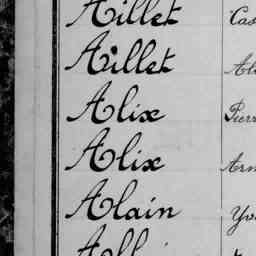 Aillet Cas
Aillet Al
Alix Pierr
Alix Arm
Alain Yv